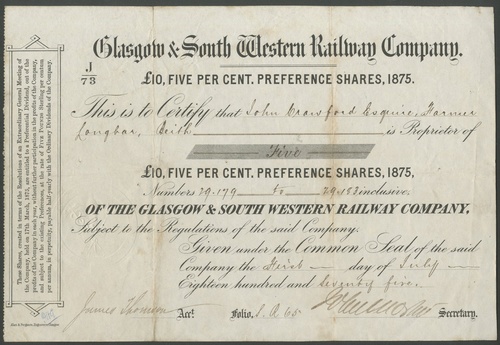 Glasgow & South Western Railway Company.
J/73
£10, FIVE PER CENT. PREFERENCE SHARES, 1875.
This is to Certify that John Crawford Esquire, Farmer
Longbar, Beith is Proprietor of
Five
£10, FIVE PER CENT. PREFERENCE SHARES, 1875,
Numbers 29,179 to inclusive,
OF THE GLASGOW & SOUTH WESTERN RAILWAY COMPANY,
Subject to the Regulations of the said Company.
Given under the Common Seal of the said
Company the First day of July
Eighteen hundred and seventy five.
James Thomson Acct. Folio, Secretary.
These Shares, created in terms of the Resolutions of an Extraordinary General Meeting of
the Company, held on 17th March, 1875, are entitled to a Preferential Dividend, out of the
profits of the Company in each year, without further participation in the profits of the Company,
and subject to the existing preferences, at the rate of FIVE POUNDS Sterling per centum
per annum, in perpetuity, payable half-yearly with the Ordinary Dividends of the Company.